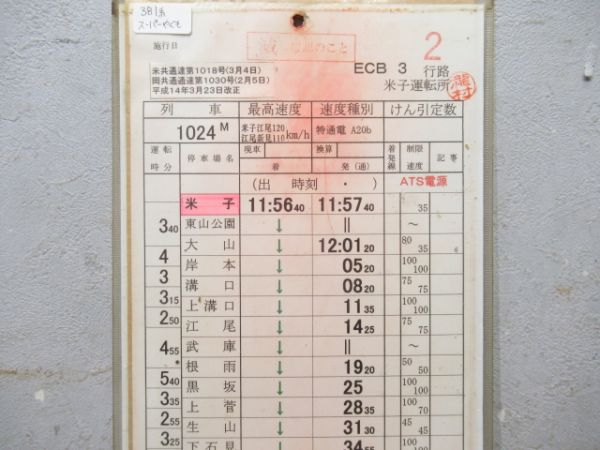 381系
スーパーやくも
施行日
米共通達第1018号(3月4日)
岡共通通達第1030号(2月5日)
平成14年3月23日改正
のこと
ECB 3 行路 2
米子運転所
列 車 最高速度 速度種別 けん引定数
1024M 米子江尾120 江尾新見110 km/h 特通電 A20b
運転時分 停車場名 現車 換算 着発線 制限速度 記事
着 発(通)
(出 時刻 ・ ) ATS電源
米子 11:56 40 11:57 40 35
3 40 東山公園 ↓ || ～
大山 ↓ 12:01 20 80 35
4 岸本 ↓ 05 20 100 100
3 溝口 ↓ 08 20 75 75
3 15 上溝口 ↓ 11 35 100 100
2 50 江尾 ↓ 14 25 75 75
武庫 ↓ || ～
4 55 根雨 ↓ 19 20 50 50
5 40 黒坂 ↓ 25 100 100
3 35 上菅 ↓ 28 35 100 70
2 55 生山 ↓ 31 30 45 45
3 25 下石見 ↓ 34 55 100